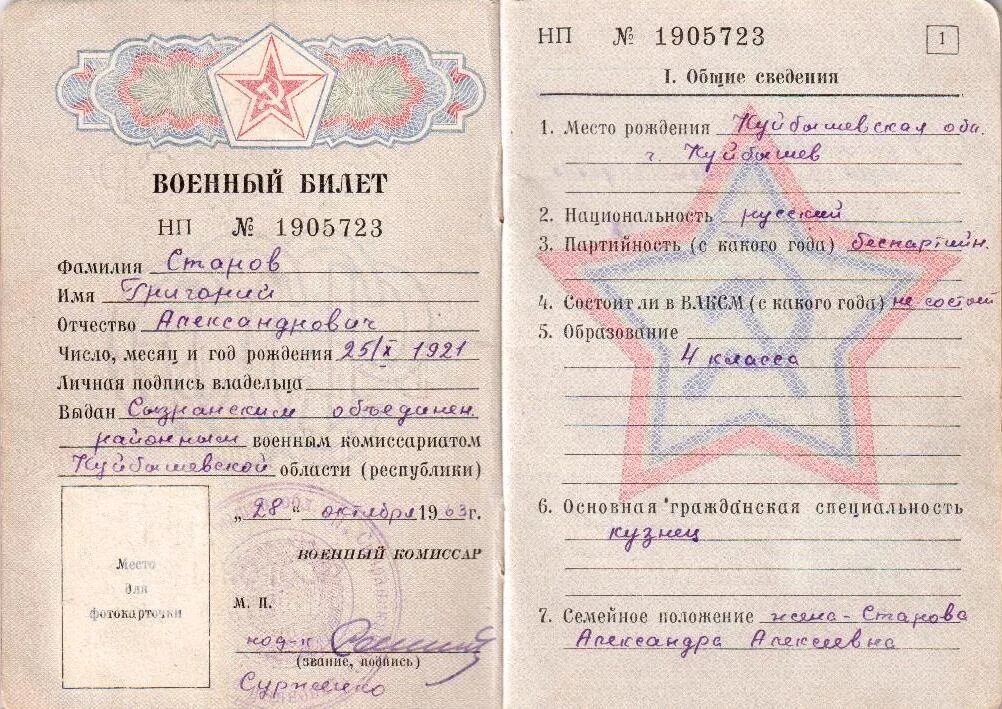 ВОЕННЫЙ БИЛЕТ
НП № 1905723
Фамилия Станов
Имя Григорий
Отчество Александрович
Число, месяц и год рождения 25/X 1921
Личная подпись владельца
Выдан Сызранским объединен.
районным военным комиссариатом
Куйбышевской области (республики)
„28“ октября 1963г.
ВОЕННЫЙ КОМИССАР
Место
для
фотокарточки
М. П.
(звание, подпись)
НП № 1905723
1
I. Общие сведения
1. Место рождения Куйбышевская обл.
г. Куйбышев
2. Национальность русский
3. Партийность (с какого года) беспартийн.
4. Состоит ли в ВЛКСМ (с какого года) не состоит
5. Образование
4 класса
6. Основная гражданская специальность
кузнец
7. Семейное положение жена - Станова
Александра Алексеевна